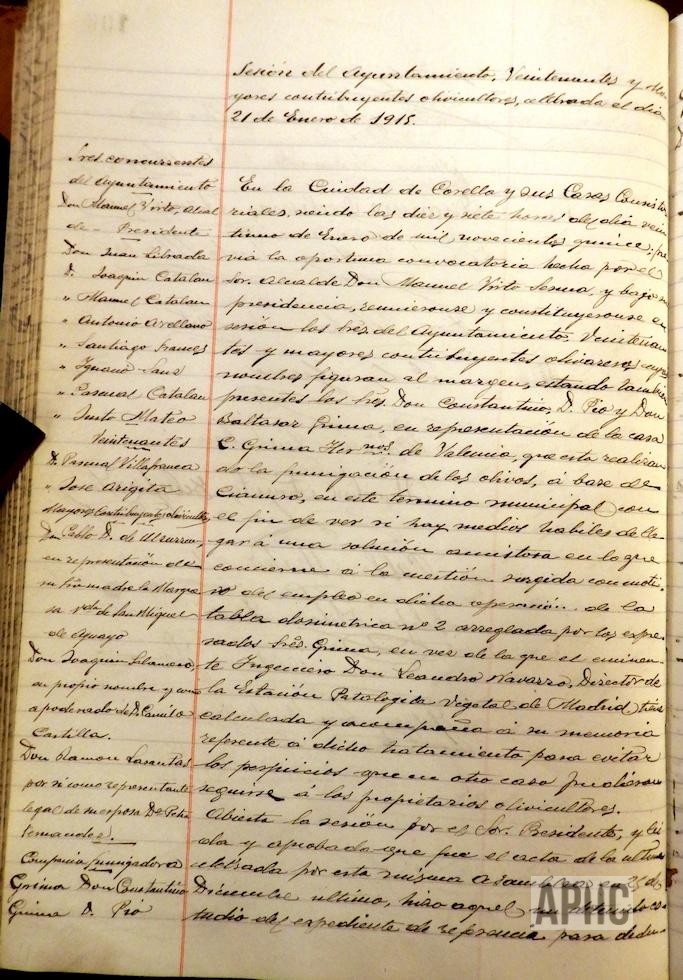 Sesión del Ayuntamiento, Veintenantes y Ma-
yores contribuyentes olivicultores, celebrada el dia
21 de Enero de 1915.
Sres. concurrentes
del Ayuntamiento
Don Manuel Virto, Alcal
de - Presidente
Don Juan Librada
D. Joaquin Catalan
" Manuel Catalan
" Antonio Arellano
" Santiago Frances
" Ignacio Sanz
" Pascual Catalan
" Justo Mateo
Veintenantes
D. Pascual Villafranca
" Jose Arigita
Mayores contribuyentes olivicultores
Don Pablo D. de
en representación de
su Sra. madre la Marque
sa vda. de San Miguel
de Aguayo
Don Joaquin
en propio nombre y como
apoderado de D. Camilo
Castilla.
Don Ramon Lasantas
por si como representante
legal de su esposa Da.
Compañia fumigadora
Grima Don Constantino
Grima D. Pio
En la Ciudad de Corella y sus Casas Consisto-
riales, siendo las diez y siete horas del dia vein
tiuno de Enero de mil novecientos quince, pre
via la oportuna convocatoria hecha por el
Sor. Alcalde Don Manuel Virto Sesma, y bajo su
presidencia, reunieronse y constituyeronse en
sesión los Sres. del Ayuntamiento, Veintenan
tes y mayores contribuyentes olivareros cuyos
nombres figuran al margen, estando tambien
presentes los Sres. Don Constantino, D. Pio y Don
Baltasar Grima, en representación de la casa
C. Grima Hermnos. de Valencia, que esta realizan
do la fumigación de los olivos, á base de
Cianuro, en este termino municipal con
el fin de ver si hay medios habiles de lle
gar á una solución amistosa en lo que
concierne á la cuestión surgida con moti
vo del empleo en dicha operación de la
tabla dosimetrica nº 2 arreglada por los expre
sados Sres. Grima, en vez de la que el eminen
te Ingeniero Don Leandro Navarro, Director de
la Estación Patologida Vegetal de Madrid, tiene
calculada y acompaña á su memoria
referente á dicho tratamiento para evitar
los perjuicios que en otro caso pudieran
seguirse á los propietarios olivicultores.
Abierta la sesión por el Sor. Presidente, y lei
da y aprobada que fue el acta de la ultima
celebrada por esta misma asamblea en 25 de
Diciembre ultimo, hizo aquel un detenido es
tudio del expediente de referencia para dedu-
APHC